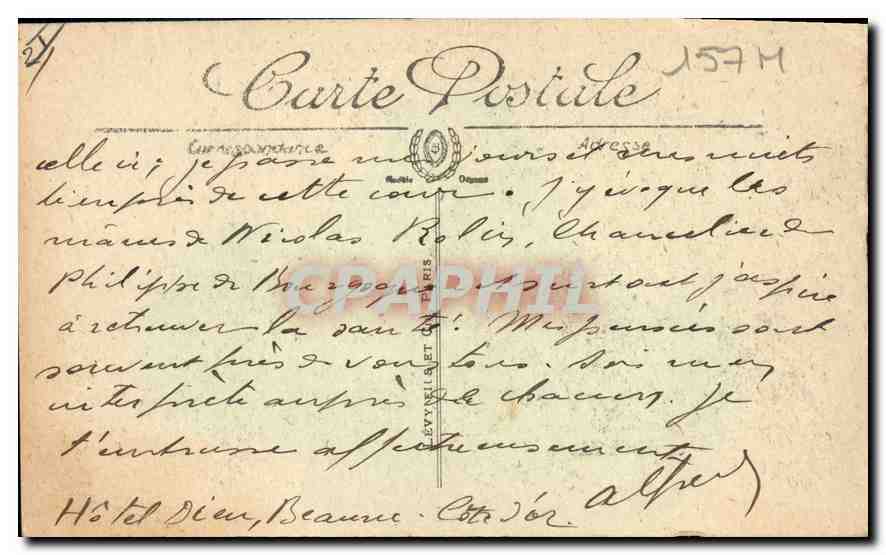 21
157M
Carte Postale
Correspondance
Adresse
celle ci ; je passe mes jours et mes nuits
bien près de cette cour. J'y évoque les
mânes de Nicolas Rolin, Chancelier de
Philippe de Bourgogne et surtout j'aspire
à retrouver la santé ! Mes pensées sont
souvent près de vous tous. Sois mon
interprète auprès de chacun. Je
t'embrasse affectueusement
Alfred
Hôtel Dieu, Beaune. Côte d'or.
LÉVY FILS ET Cie PARIS
CPAPHIL